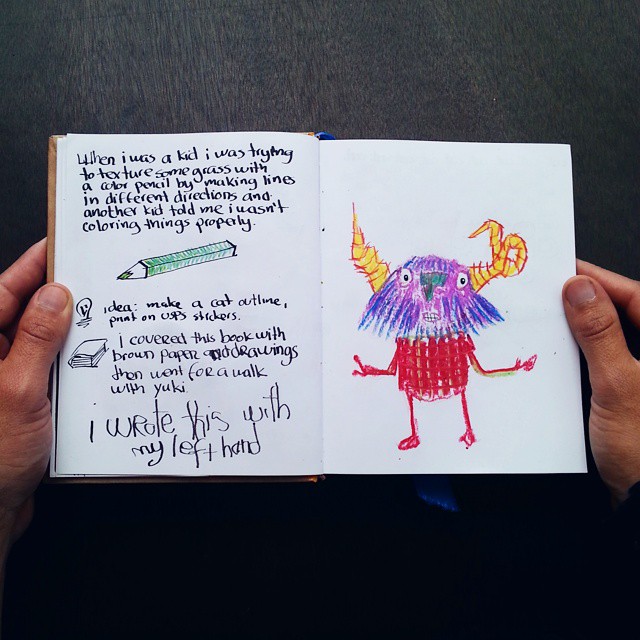 When i was a kid i was trying
to texture some grass with
a color pencil by making lines
in different directions and
another kid told me i wasn't
coloring things properly.
idea: make a cat outline,
print on USPS stickers.
i covered this book with
brown paper and drawings
then went for a walk
with yuki.
i wrote this with
my left hand